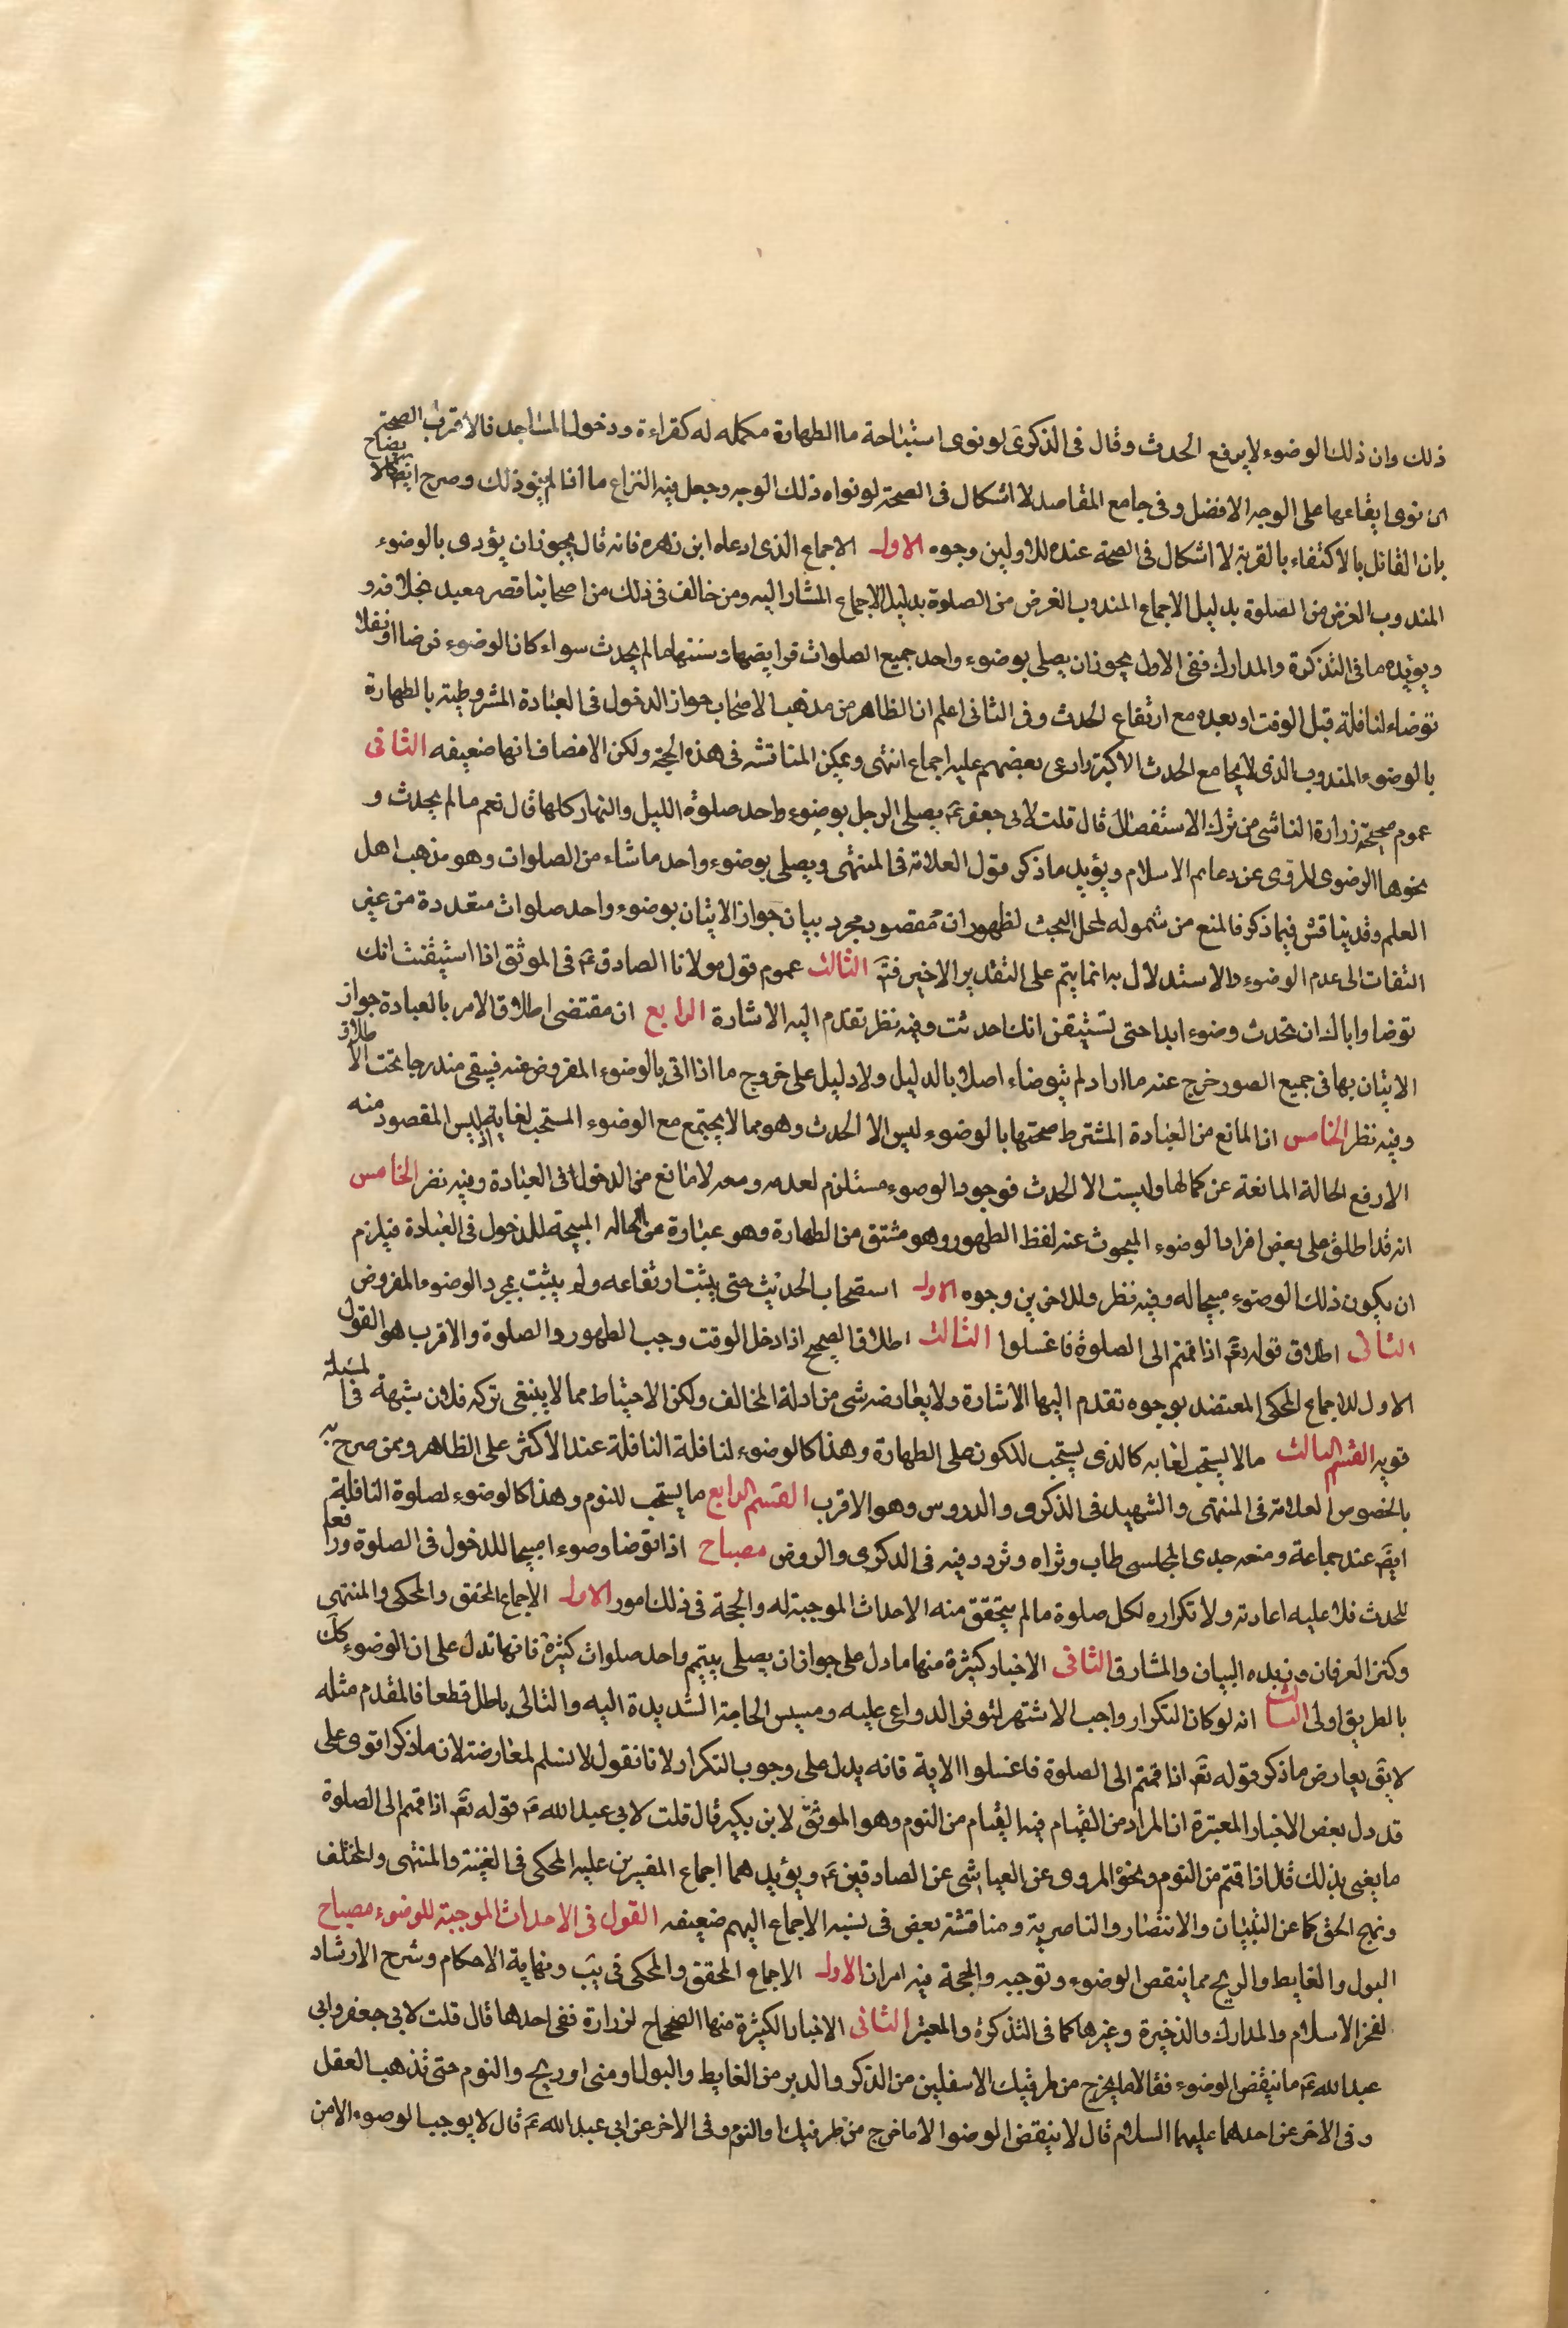 ذلك وان ذلك الوضوء لا يرفع الحدث وقال فى الذكرى لو نوى استباحة ما الطهارة مكمله له كقراءة ودخول المساجد فالاقرب الصحة
ان نوى ايقاعها على الوجه الافضل وفى جامع المقاصد لا اشكال فى الصحة لو نواه ذلك الوجه وجعل فيه النزاع ما اذا لم ينو ذلك وصرح
بان القائل بالاكتفاء بالقربة لا اشكال فى الصحة عنده للاولين وجوه الاول الاجماع الذى ادعاه ابن زهره فانه قال يجوز ان يؤدى بالوضوء
المندوب الفرض من الصلوة بدليل الاجماع المندوب الفرض من الصلوة بدليل الاجماع المشار اليه ومن خالف فى ذلك من اصحابنا قصر معيد بخلافه و
ويؤيده ما فى التذكرة والمدارك ففى الاول يجوز ان يصلى بوضوء واحد جميع الصلوات فرايضها وسننها ما لم يحدث سواء كان الوضوء فرضا او نفلا
توضاء لنافلة قبل الوقت او بعده مع ارتفاع الحدث وفى الثانى اعلم ان الظاهر من مذهب الاصحاب جواز الدخول فى العبادة المشروطة بالطهارة
بالوضوء المندوب الذى لا يجامع الحدث الاكبر وادعى بعضهم عليه اجماع انتهى ويمكن المناقشه فى هذه الحجة ولكن الانصاف انها ضعيفه الثانى
عموم صحيحة زرارة الناشى من ترك الاستفصال قال قلت لابى جعفر ع يصلى الرجل بوضوء واحد صلوة الليل والنهار كلها قال نعم ما لم يحدث و
نحوها الرضوى المروى عن دعايم الاسلام ويؤيد ما ذكر قول العلامة فى المنتهى ويصلى بوضوء واحد ما شاء من الصلوات وهو مذهب اهل
العلم وقد يناقش فيما ذكر فالمنع من شموله لمحل البحث لظهور ان مقصود مجرد بيان جواز الاتيان بوضوء واحد صلوات متعددة من غير
التفات الى عدم الوضوء والاستدلال به انما يتم على التقدير الاخير فتم الثالث عموم قول مولانا الصادق ع فى الموثق اذا استيقنت انك
توضا واياك ان تحدث وضوء ابدا حتى تستيقن انك احدثت وفيه نظر تقدم اليه الاشارة الرابع ان مقتضى اطلاق الامر بالعبادة جواز
الاتيان بها فى جميع الصور خرج عنه ما اراد لم يتوضاء اصلا بالدليل ولا دليل على خروج ما اذا اتى بالوضوء المفروض عنه فيبقى مندرجا تحت الاطلاق
وفيه نظر الخامس ان المانع من العبادة المشترط صحتها بالوضوء ليس الا الحدث وهو مما لا يجتمع مع الوضوء المستحب لغاية اذ ليس المقصود منه
الا رفع الحالة المانعة عن كمالها وليست الا الحدث فوجود الوضوء مستلزم لعدمه ومعه لا مانع من الدخول فى العبادة وفيه نظر الخامس
انه قد اطلق على بعض افراد الوضوء المبحوث عنه لفظ الطهور وهو مشتق من الطهارة وهو عبارة من الحاله المبيحة للدخول فى العبادة فيلزم
ان يكون ذلك الوضوء مبيحا له وفيه نظر وللاخرين وجوه الاول استصحاب الحديث حتى يثبت ارتفاعه ولم يثبت بمجرد الوضوء المفروض
الثانى اطلاق قوله تع اذا قمتم الى الصلوة فاغسلوا الثالث اطلاق الصحيح اذا دخل الوقت وجب الطهور والصلوة والاقرب هو القول
الاول للاجماع المحكى المعتضد بوجوه تقدم اليها الاشارة ولا يعارضه شى من ادلة المخالف ولكن الاحتياط مما لا ينبغى تركه فلان شبهة فى المسئلة
قويه القسم الثالث ما لا يستحب لغايه كالذى يستحب للكون على الطهارة وهذا كالوضوء لنافلة النافلة عند الاكثر على الظاهر وممن صرح به
بالخصوص العلامة فى المنتهى والشهيد فى الذكرى والدروس وهو الاقرب القسم الرابع ما يستحب للنوم وهذا كالوضوء لصلوة النافلة
ايضً عند جماعة ومنعه جدى المجلسى طاب ثراه وتردد فيه فى الذكرى والروض مصباح اذا توضا وضوء مبيحا للدخول فى الصلوة ورافعا
للحدث فلا عليه اعادته ولا تكراره لكل صلوة ما لم يتحقق منه الاحداث الموجبة له والحجة فى ذلك امور الاول الاجماع المحقق والمحكى والمنتهى
وكنز العرفان وزبده البيان والمشارق الثانى الاخبار كثيرة منها ما دل على جواز ان يصلى بتيمم واحد صلوات كثيرة فانها تدل على ان الوضوء كك
بالطريق اولى الثالث انه لو كان التكرار واجب الاشتهر لتوفر الدواعى عليه ومسيس الحاجة الشديدة اليه والتالى باطل قطعا فالمقدم مثله
لا يق يعارض ما ذكر قوله تع اذا قمتم الى الصلوة فاغسلوا الاية فانه يدل على وجوب التكرار لانا نقول لا نسلم لمعارضة لان ما ذكر اقوى على
قد دل بعض الاخبار المعتبرة ان المراد من القيام فيه القيام من النوم وهو الموثق لابن بكير قال قلت لابى عبد الله ع قوله تع اذا قمتم الى الصلوة
ما يعنى بذلك قال اذا قمتم من النوم ونحوه المروى عن العياشى عن الصادقين ع ويؤيدهما اجماع المفسرين عليه المحكى فى الغنية والمنتهى والمختلف
ونهج الحق كما عن التبيان والانتصار والناصرية ومناقشة بعض فى نسبه الاجماع اليهم ضعيفه القول فى الاحداث الموجبة للوضوء مصباح
البول والغايط والريح مما ينقض الوضوء وتوجبه والحجة فيه امران الاول الاجماع المحقق والمحكى فى يب ونهاية الاحكام وشرح الارشاد
لفخر الاسلام والمدارك والذخيرة وغيرها كما فى التذكرة والمعتبر الثانى الاخبار الكثيرة منها الصحاح لزرارة ففى احدها قال قلت لابى جعفر وابى
عبد الله ع ما ينقض الوضوء فقالا ما يخرج من طرفيك الاسفلين من الذكر والدبر من الغايط والبول او منى او ريح والنوم حتى تذهب العقل
وفى الاخر عن احدهما عليهما السلام قال لا ينقض الوضوا الا ما خرج من طرفيك او النوم وفى الاخر عن ابى عبد الله ع قال لا يوجب الوضوء الا من